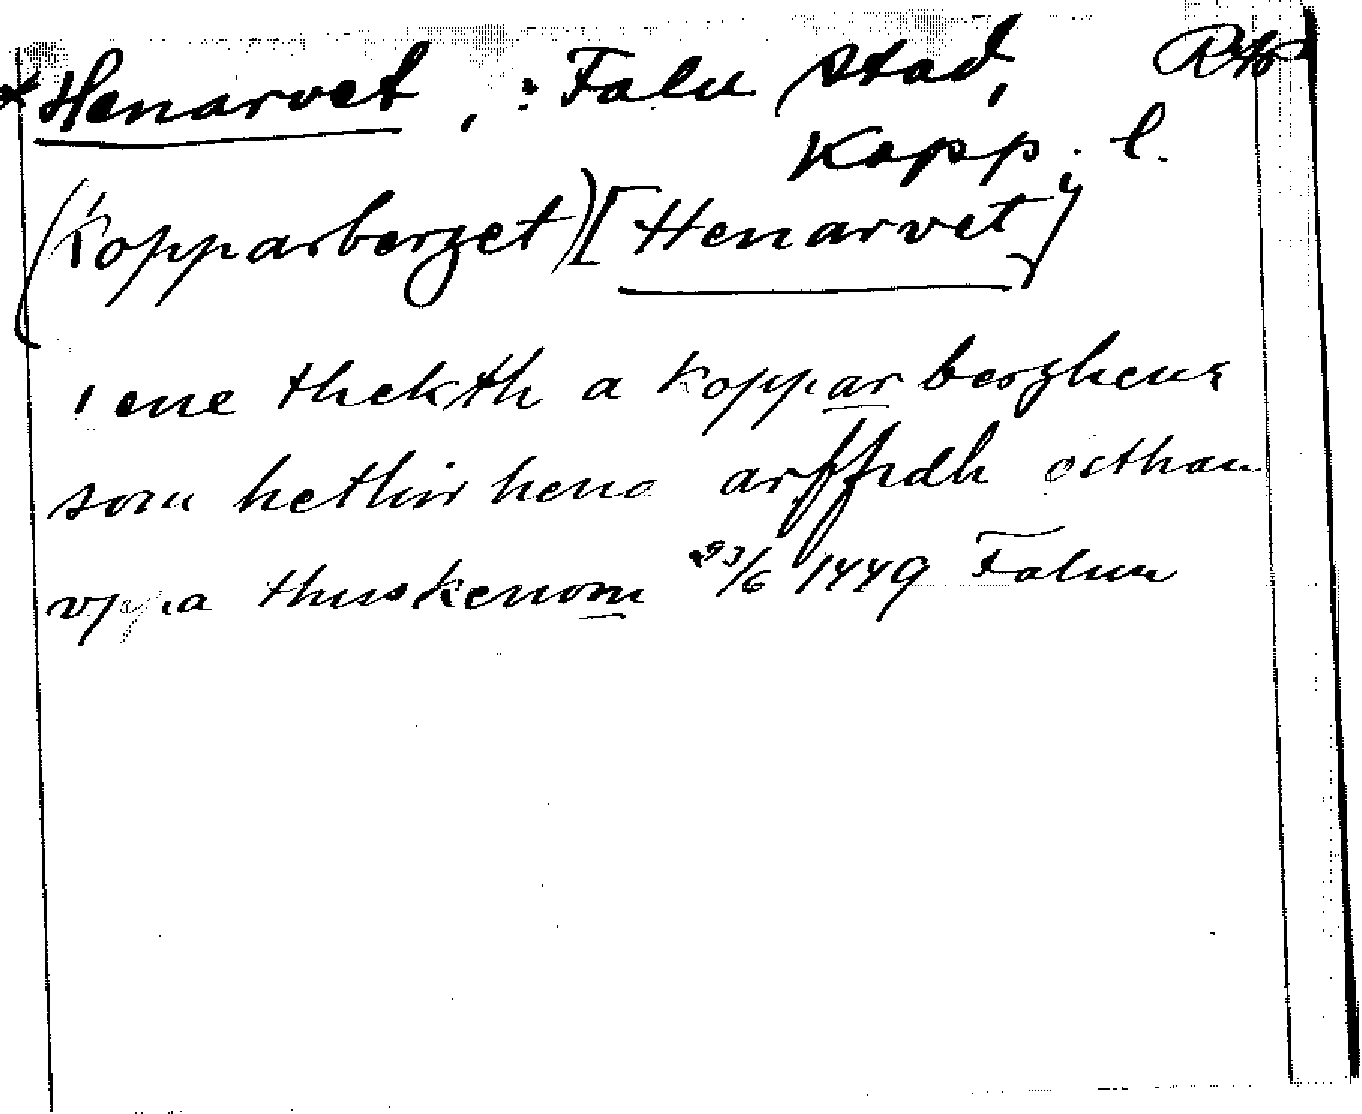 *Henarvet, : Falu stad,
Kopp. l.
(Kopparberget) [Henarvet]
i ene thekth a kopparberghens
som hethir hena arffridh østhan
vppa thuskenom 23/6 1449 Falun